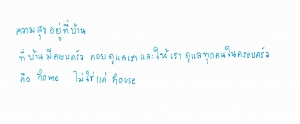 ความสุขอยู่ที่บ้าน
ที่บ้านมีครอบครัว คอยดูแลเรา และให้เรา ดูแลทุกคนในครอบครัว
คือ home ไม่ใช่แค่ house